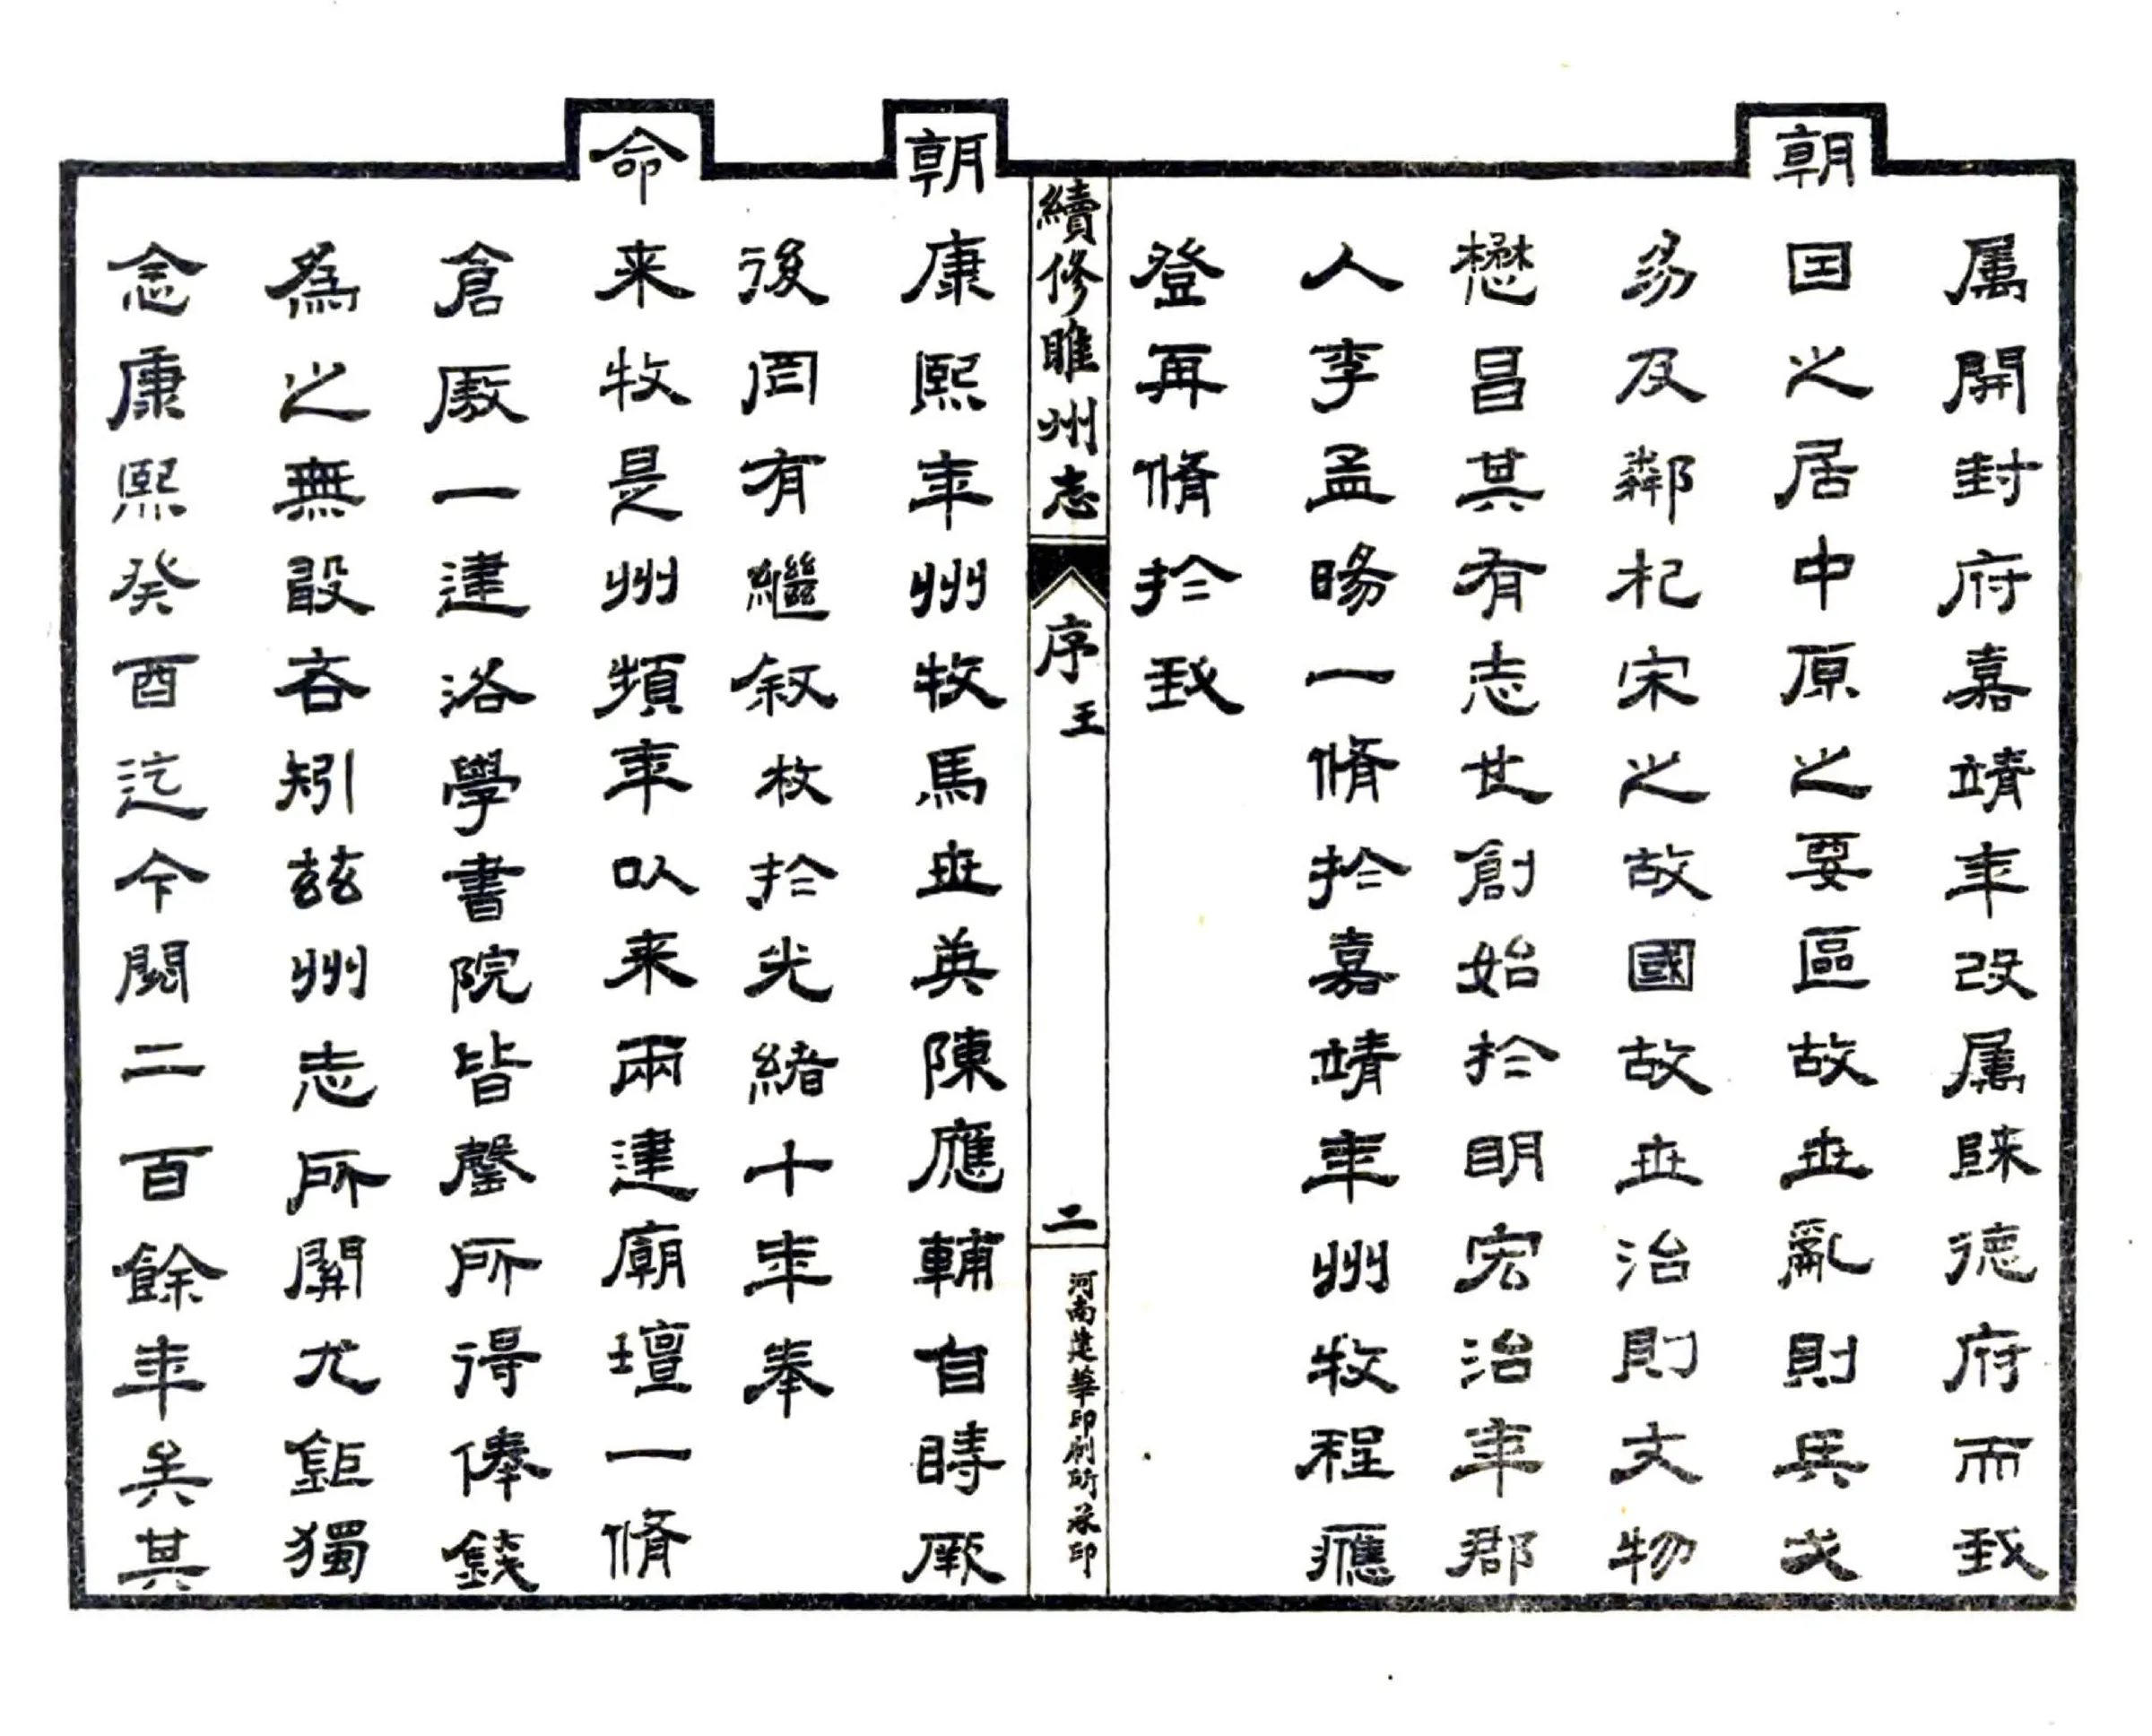 属開封府嘉靖年改属歸德府而我
朝因之居中原之要區故世亂則兵戈
易及鄰杞宋之故國故世治則文物
懋昌其有志也創始於明宏治年郡
人李孟暘一脩於嘉靖年州牧程應
登再脩於我
續修睢州志 序 王 二 河南建華印刷所承印
朝康熙年州牧馬世英陳應輔自時厥
後罔有繼叙枚於光緒十年奉
命来牧是州頻年以来兩建廟壇一脩
倉厫一建洛學書院皆罄所得俸錢
為之無敢吝矧兹州志所關尤鉅獨
念康熙癸酉迄今閱二百餘年矣其